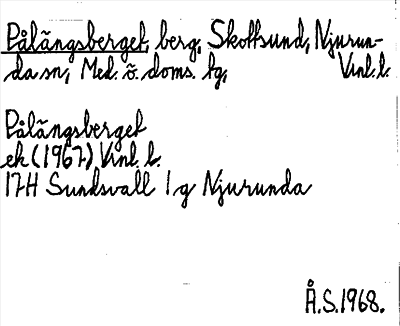 Pålängsberget, berg, Skottsund, Njurun-
da sn, Med. ö. doms. tg, Vnl. l.
Pålängsberget
ek (1967) Vnl. l.
17H Sundsvall 1 g Njurunda
Å.S. 1968.